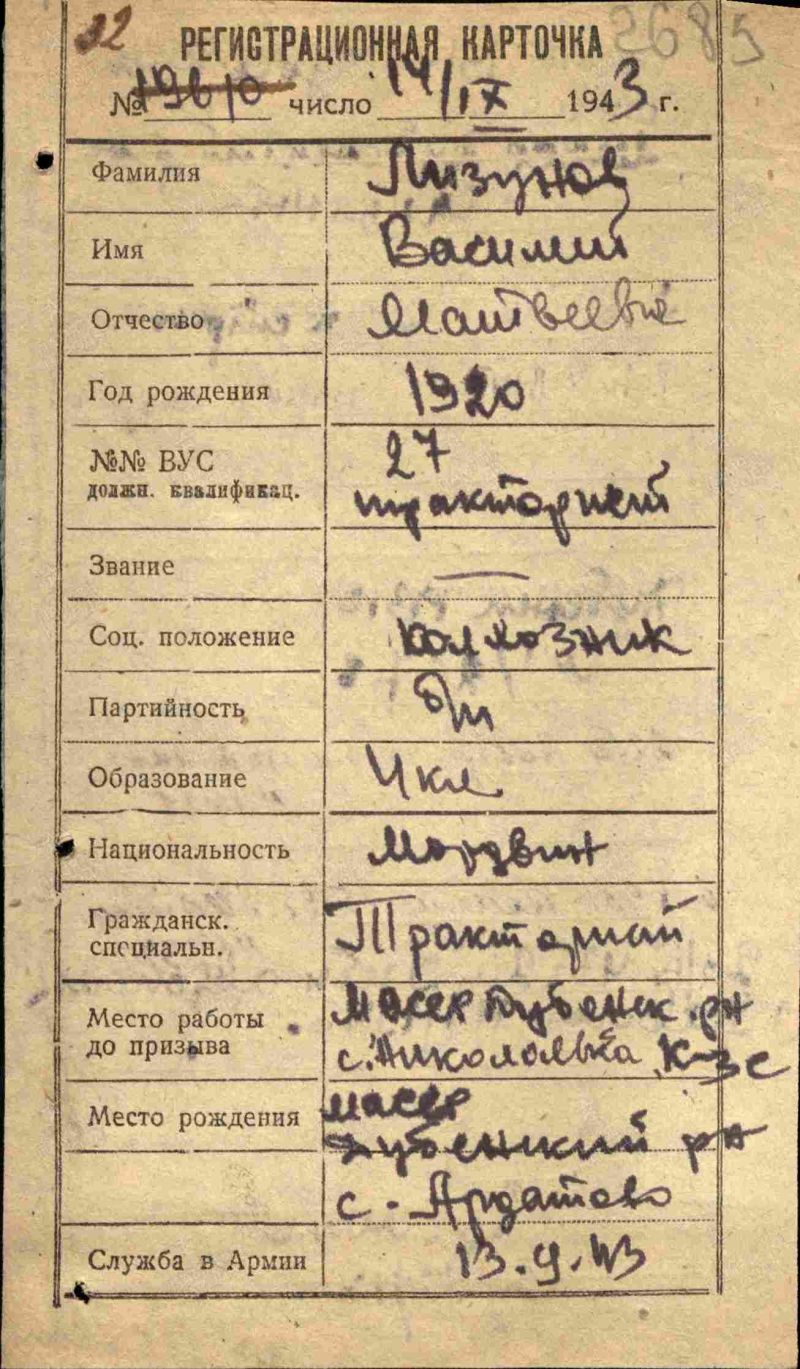 32 РЕГИСТРАЦИОННАЯ КАРТОЧКА 3685
№ 19610 число 14/IX 1943 г.
Фамилия Лизунов
Имя Василий
Отчество Матвеевич
Год рождения 1920
№№ ВУС 27
должн. квалификац. тракторист
Звание —
Соц. положение колхозник
Партийность б/п
Образование 4 кл.
Национальность Мордвин
Гражданск.
специальн.
Место работы МАССР Дубенск. р-н
до призыва с. Николаевка к-з
Место рождения МАССР
Дубенский р-н
с. Ардатово
Служба в Армии 13.9.43